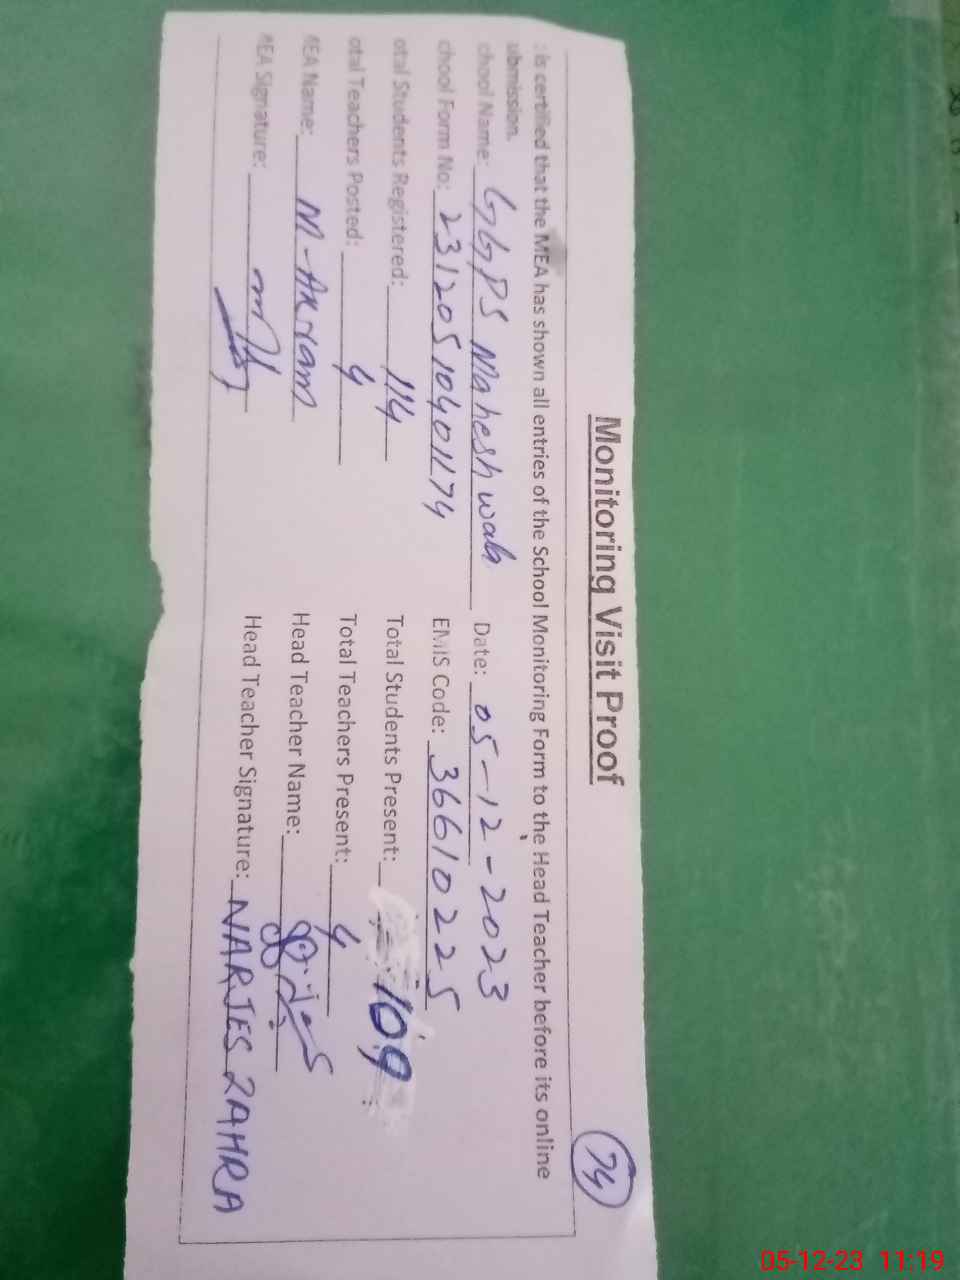 Monitoring Visit Proof
74
is certified that the MEA has shown all entries of the School Monitoring Form to the Head Teacher before its online
ubmission.
chool Name: GGPS Maheshwah Date: 05-12-2023
chool Form No: 231205104011174 EMIS Code: 36610225
otal Students Registered: 114 Total Students Present: 109
otal Teachers Posted: 4 Total Teachers Present: 4
MEA Name: M-Akram Head Teacher Name:
MEA Signature: Head Teacher Signature: NARJES ZAHRA
05-12-23 11:19